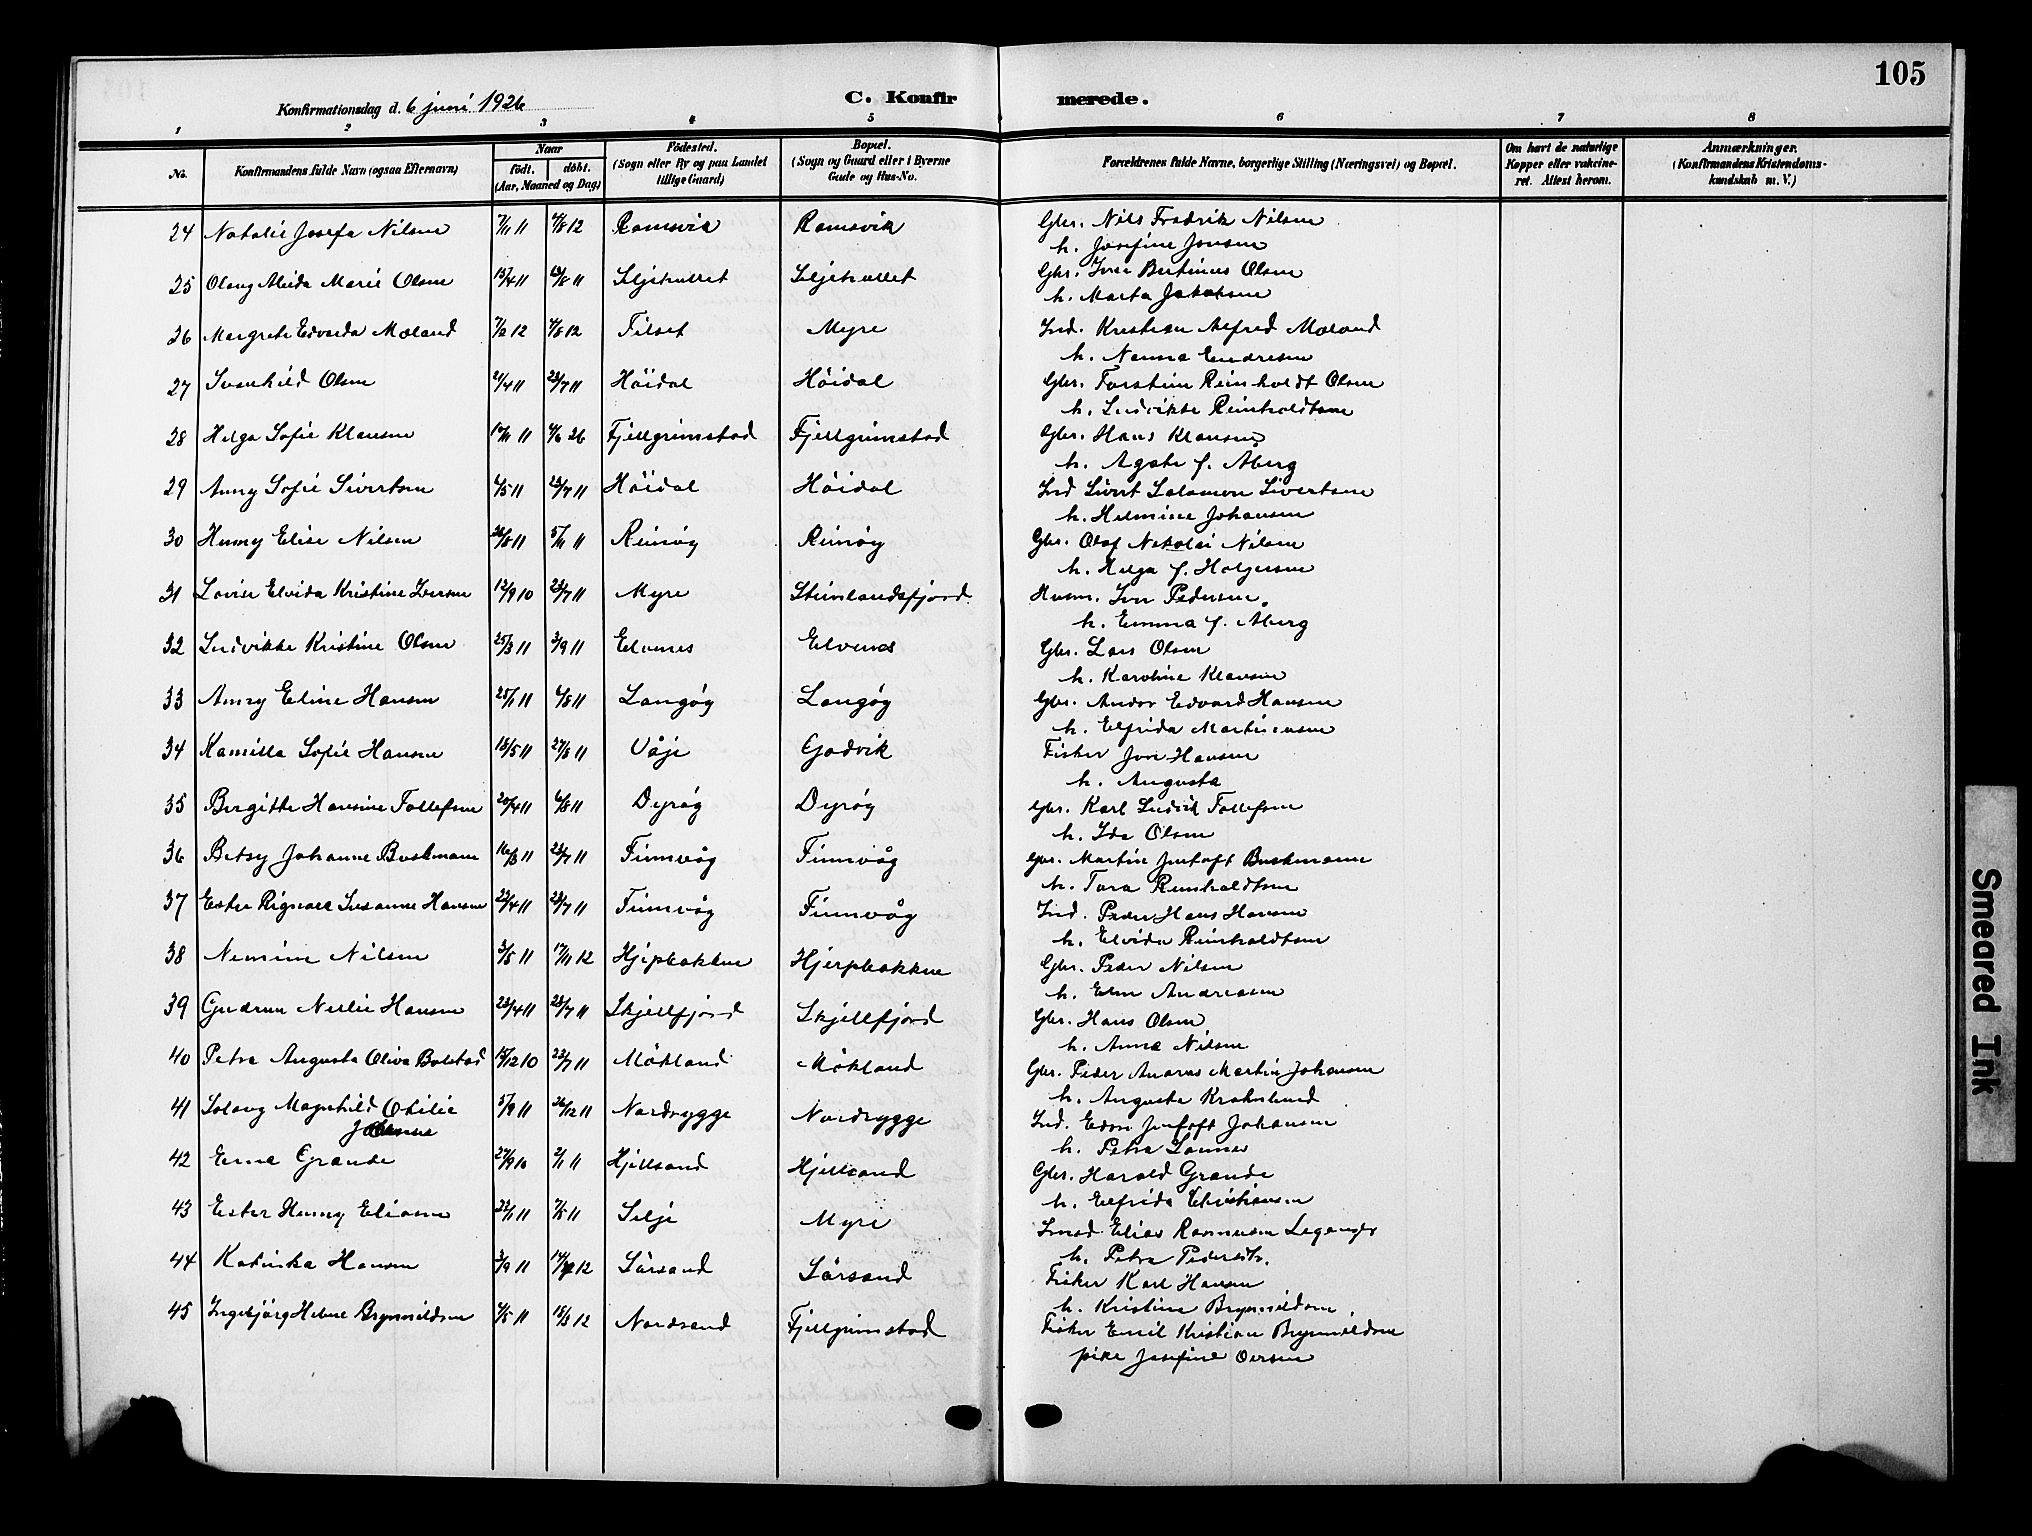 105
Konfirmationsdag d. 6 juni 1926
C. Konfirmerede.
1 2 3 4 5 6 7 8
No. Konfirmandens fulde Navn (ogsaa Efternavn) Naar født. døbt. (Aar, Maaned og Dag) Fødested. (Sogn eller By og paa Landet tillige Gaard) Bopæl. (Sogn og Gaard eller i Byerne Gade og Hus-No. Forældrenes fulde Navne, borgerlige Stilling (Næringsvei) og Bopæl. Om havt de naturlige Kopper eller vaccineret. Attest herom. Anmærkninger. (Konfirmandens Kristendomskundskab m. V.)
24 Natalie Josefa Nilsen 7/11 11 4/8 12 Ramsvik Ramsvik Gbr. Nils Fredrik Nilsen
h. Josefine Jensen
25 Olaug Alvida Marie Olsen 15/4 11 Siljehullet Siljehullet Gbr. Iver Bertinus Olsen
h. Marta Jakobsen
26 Margrete Edvarda Mæland 7/2 12 4/8 12 Filset Myre Ind. Kristian Alfred Mæland
h. Nanna Endresen
27 Svanhild Olsen 21/4 11 23/7 11 Höidal Höidal Gbr. Torstein Reinholdt Olsen
h. Ludvikke Reinholdtsen
28 Helga Sofie Klausen 6/6 26 Fjellgrimstad Fjellgrimstad Gbr. Hans Klausen
h. Agate f. Åberg
29 Anny Sofie Sivertsen 6/5 11 23/7 11 Höidal Höidal Ind Sivert Salamon Sivertsen
h. Helmine Johansen
30 Henny Elise Nilsen 26/8 11 5/11 11 Reinöy Reinöy Gbr. Olaf Nikolai Nilsen
h. Helga f. Holgersen
31 Lovise Elvida Kristine Iversen 12/9 10 23/7 11 Myre Steinlandsfjord Husm. Iver Pedersen
h. Emma f. Åberg
32 Ludvikke Kristine Olsen 25/3 11 3/9 11 Elvenes Elvenes Gbr. Lars Olsen
h. Karoline Klausen
33 Anny Eline Hansen 25/1 11 6/8 11 Langöy Langöy Gbr. Andor Edvard Hansen
h. Elfrida Martinussen
34 Kamilla Sofie Hansen 18/5 11 27/8 11 Våje Gadvik Fisker Jon Hansen
h. Augusta
35 Birgitte Hansine Tollefsen 20/4 11 6/8 11 Dyröy Dyröy Gbr. Karl Ludvik Tollefsen
h. Ida Olsen
36 Betsy Johanne Buskmann 16/3 11 23/7 11 Finnvåg Finnvåg Gbr. Martin Jentoft Buskmann
h. Tora Reinholdtsen
37 Ester Susanne Hansen 22/4 11 23/7 11 Finnvåg Finnvåg Ind. Peder Hans Hansen
h. Elvida Reinholdtsen
38 Nilsen 3/5 11 17/11 12 Hjerpbakken Hjerpbakken Gbr. Peder Nilsen
h. Elen Andreasen
39 Gudrun Nellie Hansen 23/4 11 23/7 11 Skjellfjord Skjellfjord Gbr. Hans Olsen
h. Anna Nilsen
40 Petra Augusta Oliva Bolstad 23/7 11 Mökland Mökland Gbr. Peder Andreas Martin Johansen
h. Augusta
41 Solaug Magnhild Otilie 5/9 11 26/12 11 Nordrygge Nordrygge Ind. Edon Jentoft Johansen
Johansen h. Petra
42 Erna Grande 27/9 10 2/1 11 Hjellsand Hjellsand Gbr. Harald Grande
h. Elfrida Christiansen
43 Ester Henny Eliasen 22/1 11 7/5 11 Selje Myre Elias Rasmusen
h. Petra Pedersdtr.
44 Katinka Hansen 3/9 11 Sörsand Sörsand Fisker Karl Hansen
h. Kristine Brynnildsen
45 Ingebjörg Helene Brynnildsen 4/5 11 18/8 12 Nordsand Fjellgrimstad Fisker Emil Kristian Brynnildsen
pike Josefine
Smeared Ink